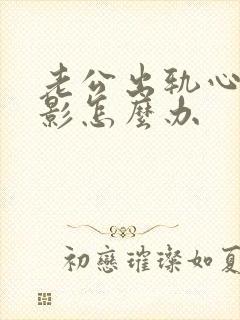 老公出轨心
影怎麼办
初戀璀璨如夏